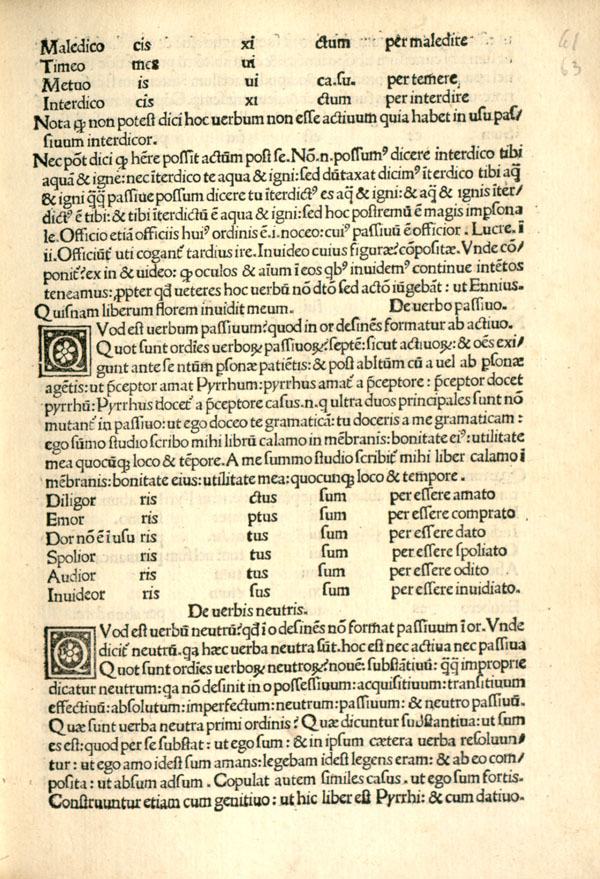 61
63
Maledico cis xi ctum per maledire
Timeo mes ui
Metuo is ui ca.su. per temere
Interdico cis xi ctum per interdire
Nota ꝙ non poteſt dici hoc uerbum non eſſe actiuum quia habet in uſu paſ/
ſiuum interdicor.
Nec pōt dici ꝙ hēre poſſit actūm poſt ſe. Nō.n.poſſumꝰ dicere interdico tibi
aquā & ignē: nec īterdico te aqua & igni: ſed dūtaxat dicimꝰ īterdico tibi aq̄
& igni q̄q̄ paſſiue poſſum dicere tu īterdictꝰ es aq̄ & igni: & aq̄ & ignis īter/
dictꝰ ē tibi: & tibi īterdictū ē aqua & igni: ſed hoc poſtremū ē magis imꝑſona
le. Officio etiā officiis huiꝰ ordinis ē.i.noceo: cuiꝰ paſſiuū ē officior. Lucre. ī
ii. Officiūt̄ uti cogant̄ tardius ire. Inuideo cuius figuræ? cōpoſitæ. Vnde cō/
ponit̄? ex in & uideo: ꝙ oculos & aīum ī eos qbꝰ inuidemꝰ continue intētos
teneamus: ꝓpter qd̄ ueteres hoc uerbū nō dtō ſed actō iūgebāt: ut Ennius.
Quiſnam liberum florem inuidit meum. De uerbo paſſiuo.
QVod eſt uerbum paſſiuum? quod in or deſinēs formatur ab actiuo.
Quot ſunt ordīes uerboꝝ paſſiuoꝝ? ſeptē: ſicut actiuoꝝ: & oēs exi/
gunt ante ſe ntūm ꝑſonæ patiētis: & poſt abltūm cū a uel ab ꝑſonæ
agētis: ut p̄ceptor amat Pyrrhum: pyrrhus amat̄ a p̄ceptore: p̄ceptor docet
pyrrhū: Pyrrhus docet̄ a p̄ceptore caſus.n.q ultra duos principales ſunt nō
mutant̄ in paſſiuo: ut ego doceo te gramaticā: tu doceris a me gramaticam:
ego ſūmo ſtudio ſcribo mihi librū calamo in mēbranis: bonitate eiꝰ: utilitate
mea quocūꝗ loco & tēpore. A me ſummo ſtudio ſcribit̄ mihi liber calamo ī
mēbranis: bonitate eius: utilitate mea: quocunꝗ loco & tempore.
Diligor ris ctus ſum per eſſere amato
Emor ris ptus ſum per eſſere comprato
Dor nō ē ī uſu ris tus ſum per eſſere dato
Spolior ris tus ſum per eſſere ſpoliato
Audior ris tus ſum per eſſere odito
Inuideor ris ſus ſum per eſſere inuidiato.
De uerbis neutris.
QVod eſt uerbū neutrū? qd̄ ī o deſinēs nō format paſſiuum ī or. Vnde
dicit̄ neutrū. qa hæc uerba neutra ſūt. hoc eſt nec actiua nec paſſiua
Quot ſunt ordīes uerboꝝ neutroꝝ? nouē: ſubſtātiuū: q̄q̄ improprie
dicatur neutrum: qa nō deſinit in o poſſeſſiuum: acquiſitiuum: tranſitiuum
effectiuū: abſolutum: imperfectum: neutrum: paſſiuum: & neutro paſſiuū.
Quæ ſunt uerba neutra primi ordinis? Quæ dicuntur ſubſtantiua: ut ſum
es eſt: quod per ſe ſubſtat: ut ego ſum: & in ipſum cætera uerba reſoluun/
tur: ut ego amo ideſt ſum amans: legebam ideſt legens eram: & ab eo com/
poſita: ut abſum adſum. Copulat autem ſimiles caſus. ut ego ſum fortis.
Conſtruuntur etiam cum genitiuo: ut hic liber eſt Pyrrhi: & cum datiuo.